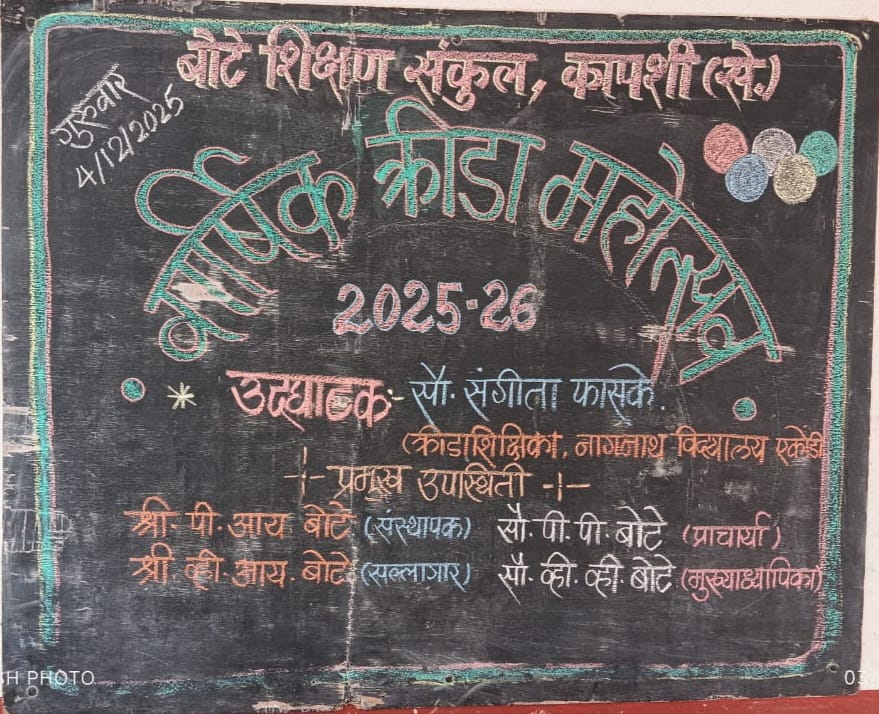 बोटे शिक्षण संकुल, कापशी (खे.)
गुरुवार
4/12/2025
वार्षिक क्रीडा महोत्सव
2025-26
* उद्घाटक:- सौ. संगीता फासके.
(क्रीडाशिक्षिका, नागनाथ विद्यालय एकोडी
-|- प्रमुख उपस्थिती -|-
श्री. पी. आय बोटे (संस्थापक) सौ. पी. पी. बोटे (प्राचार्या)
श्री. व्ही. आय. बोटे (सल्लागार) सौ. व्ही. व्ही. बोटे (मुख्याध्यापिका)
SH PHOTO
03